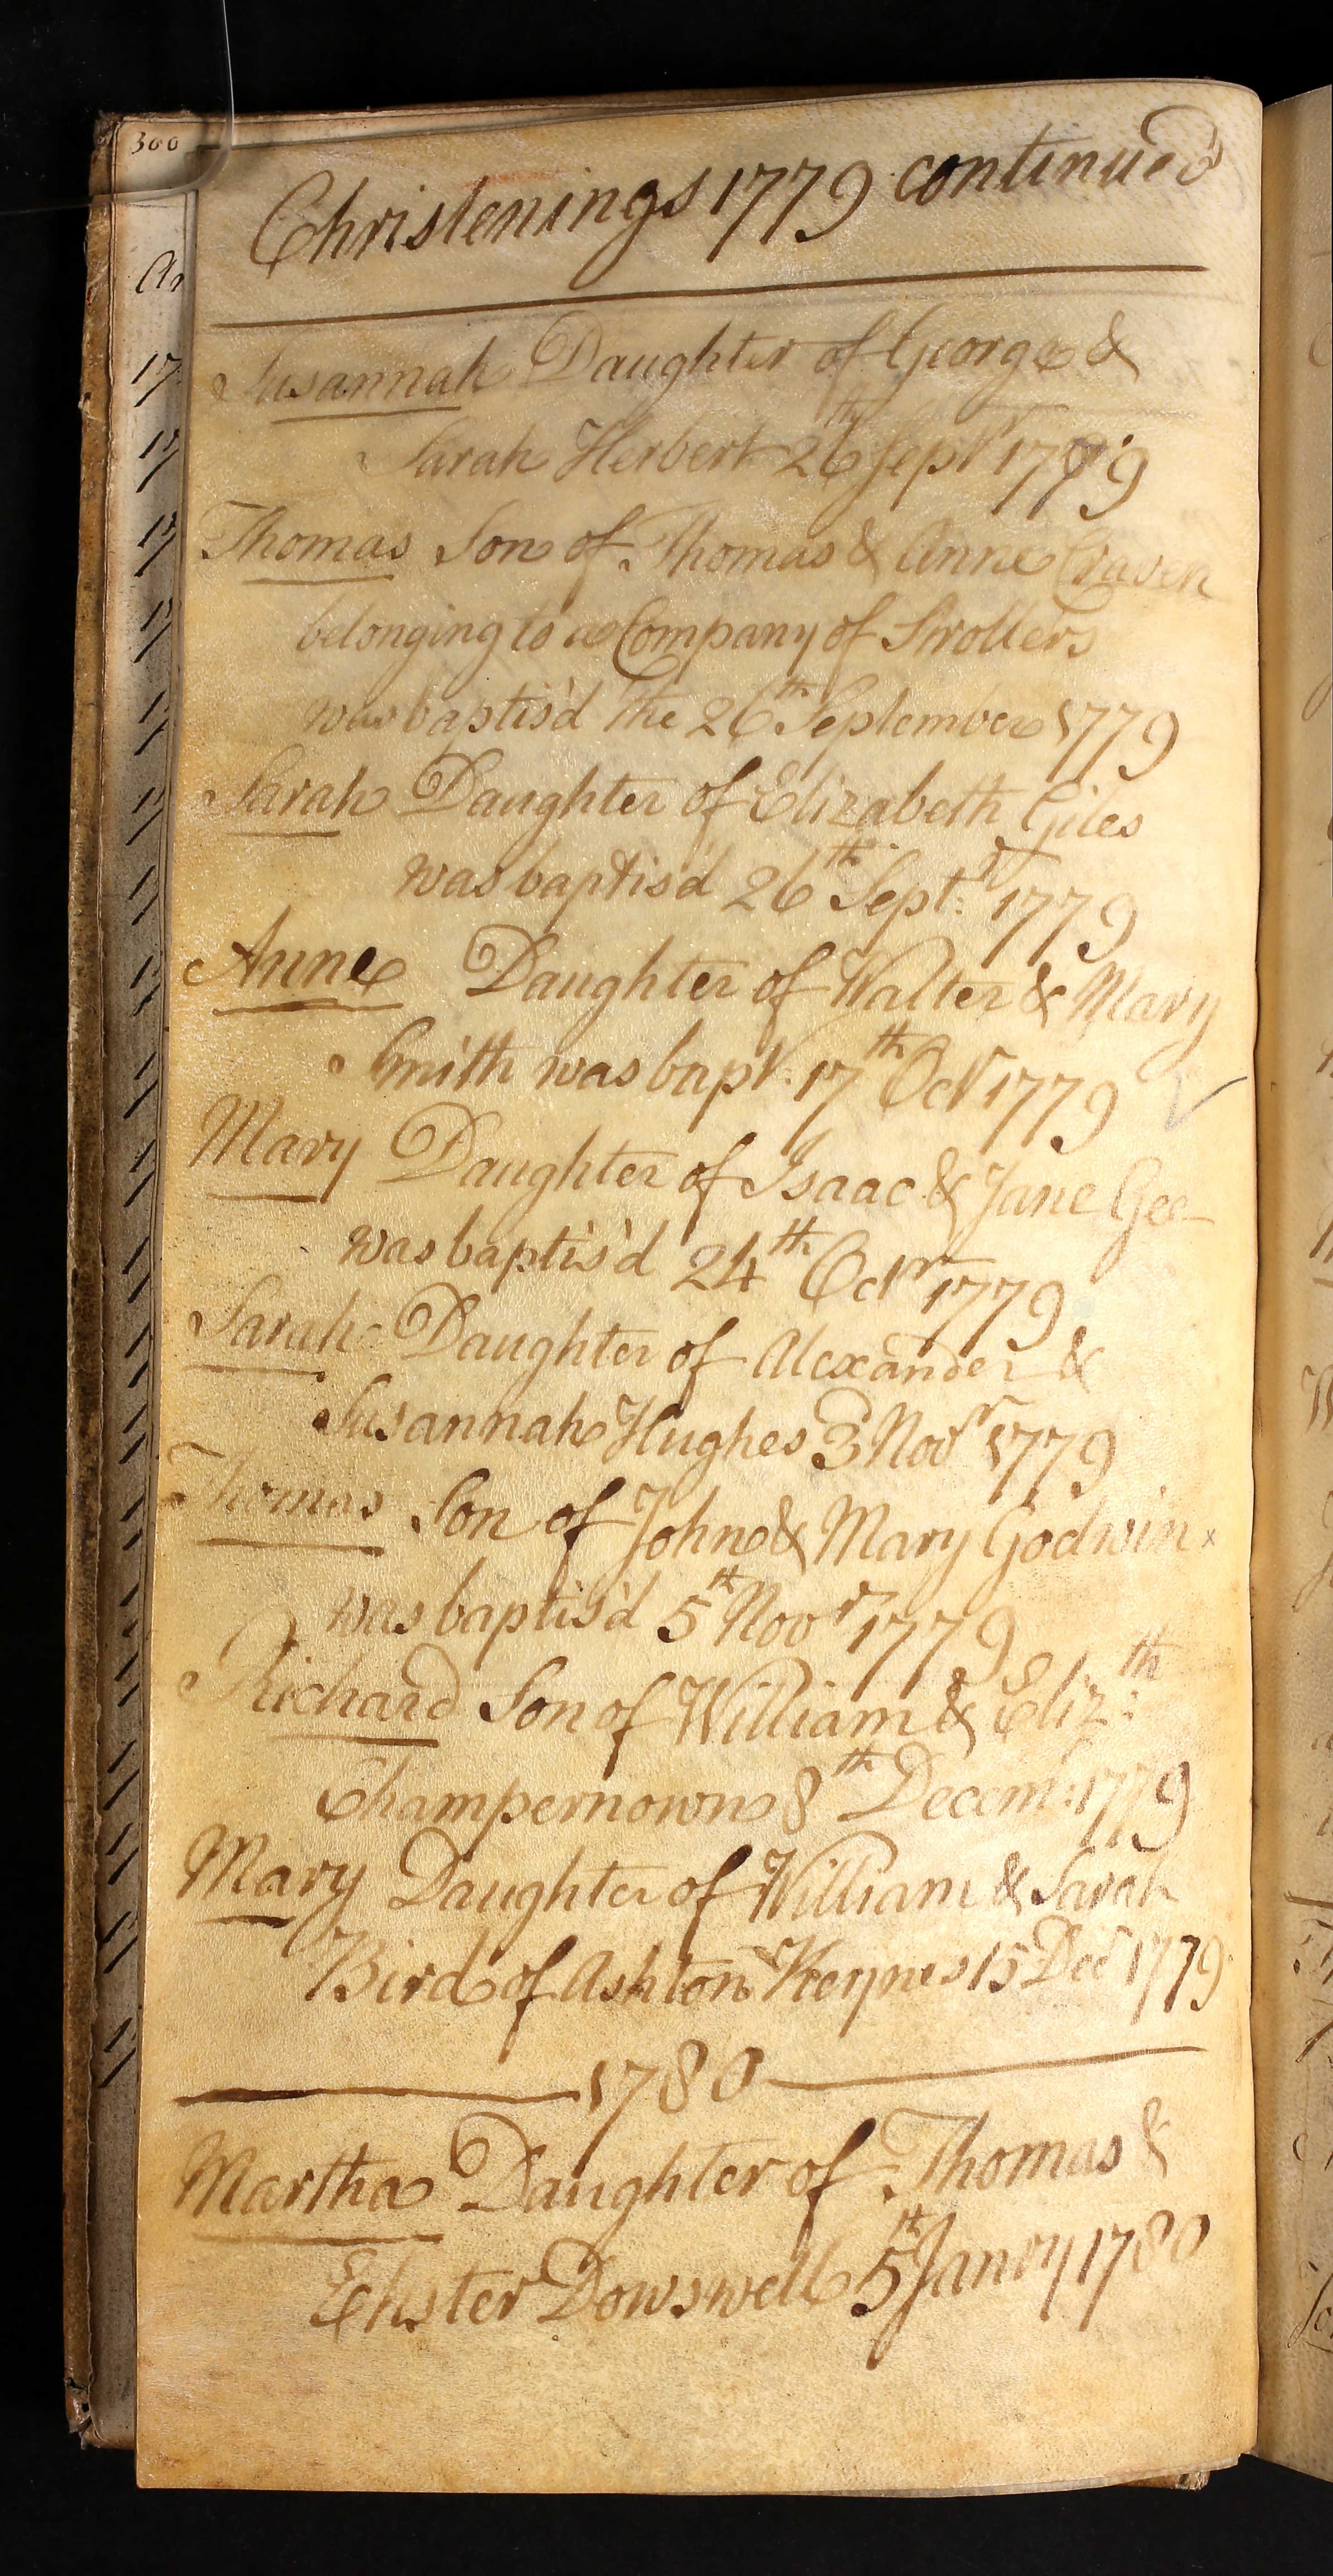 300
Christenings 1779 continued
Susannah Daughter of George &
Sarah Herbert 26th Septr 1779
Thomas Son of Thomas & Anne Craven
belonging to a Company of Strollers
was baptis'd the 26th September 1779
Sarah Daughter of Elizabeth Giles
was baptis'd 26th Septr: 1779
Anne Daughter of Walter & Mary
Smith was bapt: 17th Octr 1779
Mary Daughter of Isaac & Jane Gee
was baptis'd 24th Octr 1779
Sarah Daughter of Alexander &
Susannah Hughes 3 Novr 1779
Thomas Son of John & Mary Godwin x
was baptis'd 5th Novr 1779
Richard Son of William & Eliz:th
Champernown 8th Decem: 1779
Mary Daughter of William & Sarah
Bird of Ashton Keynes 15 Decr 1779
1780
Martha Daughter of Thomas &
Ehster Dowswell 5th Janry 1780